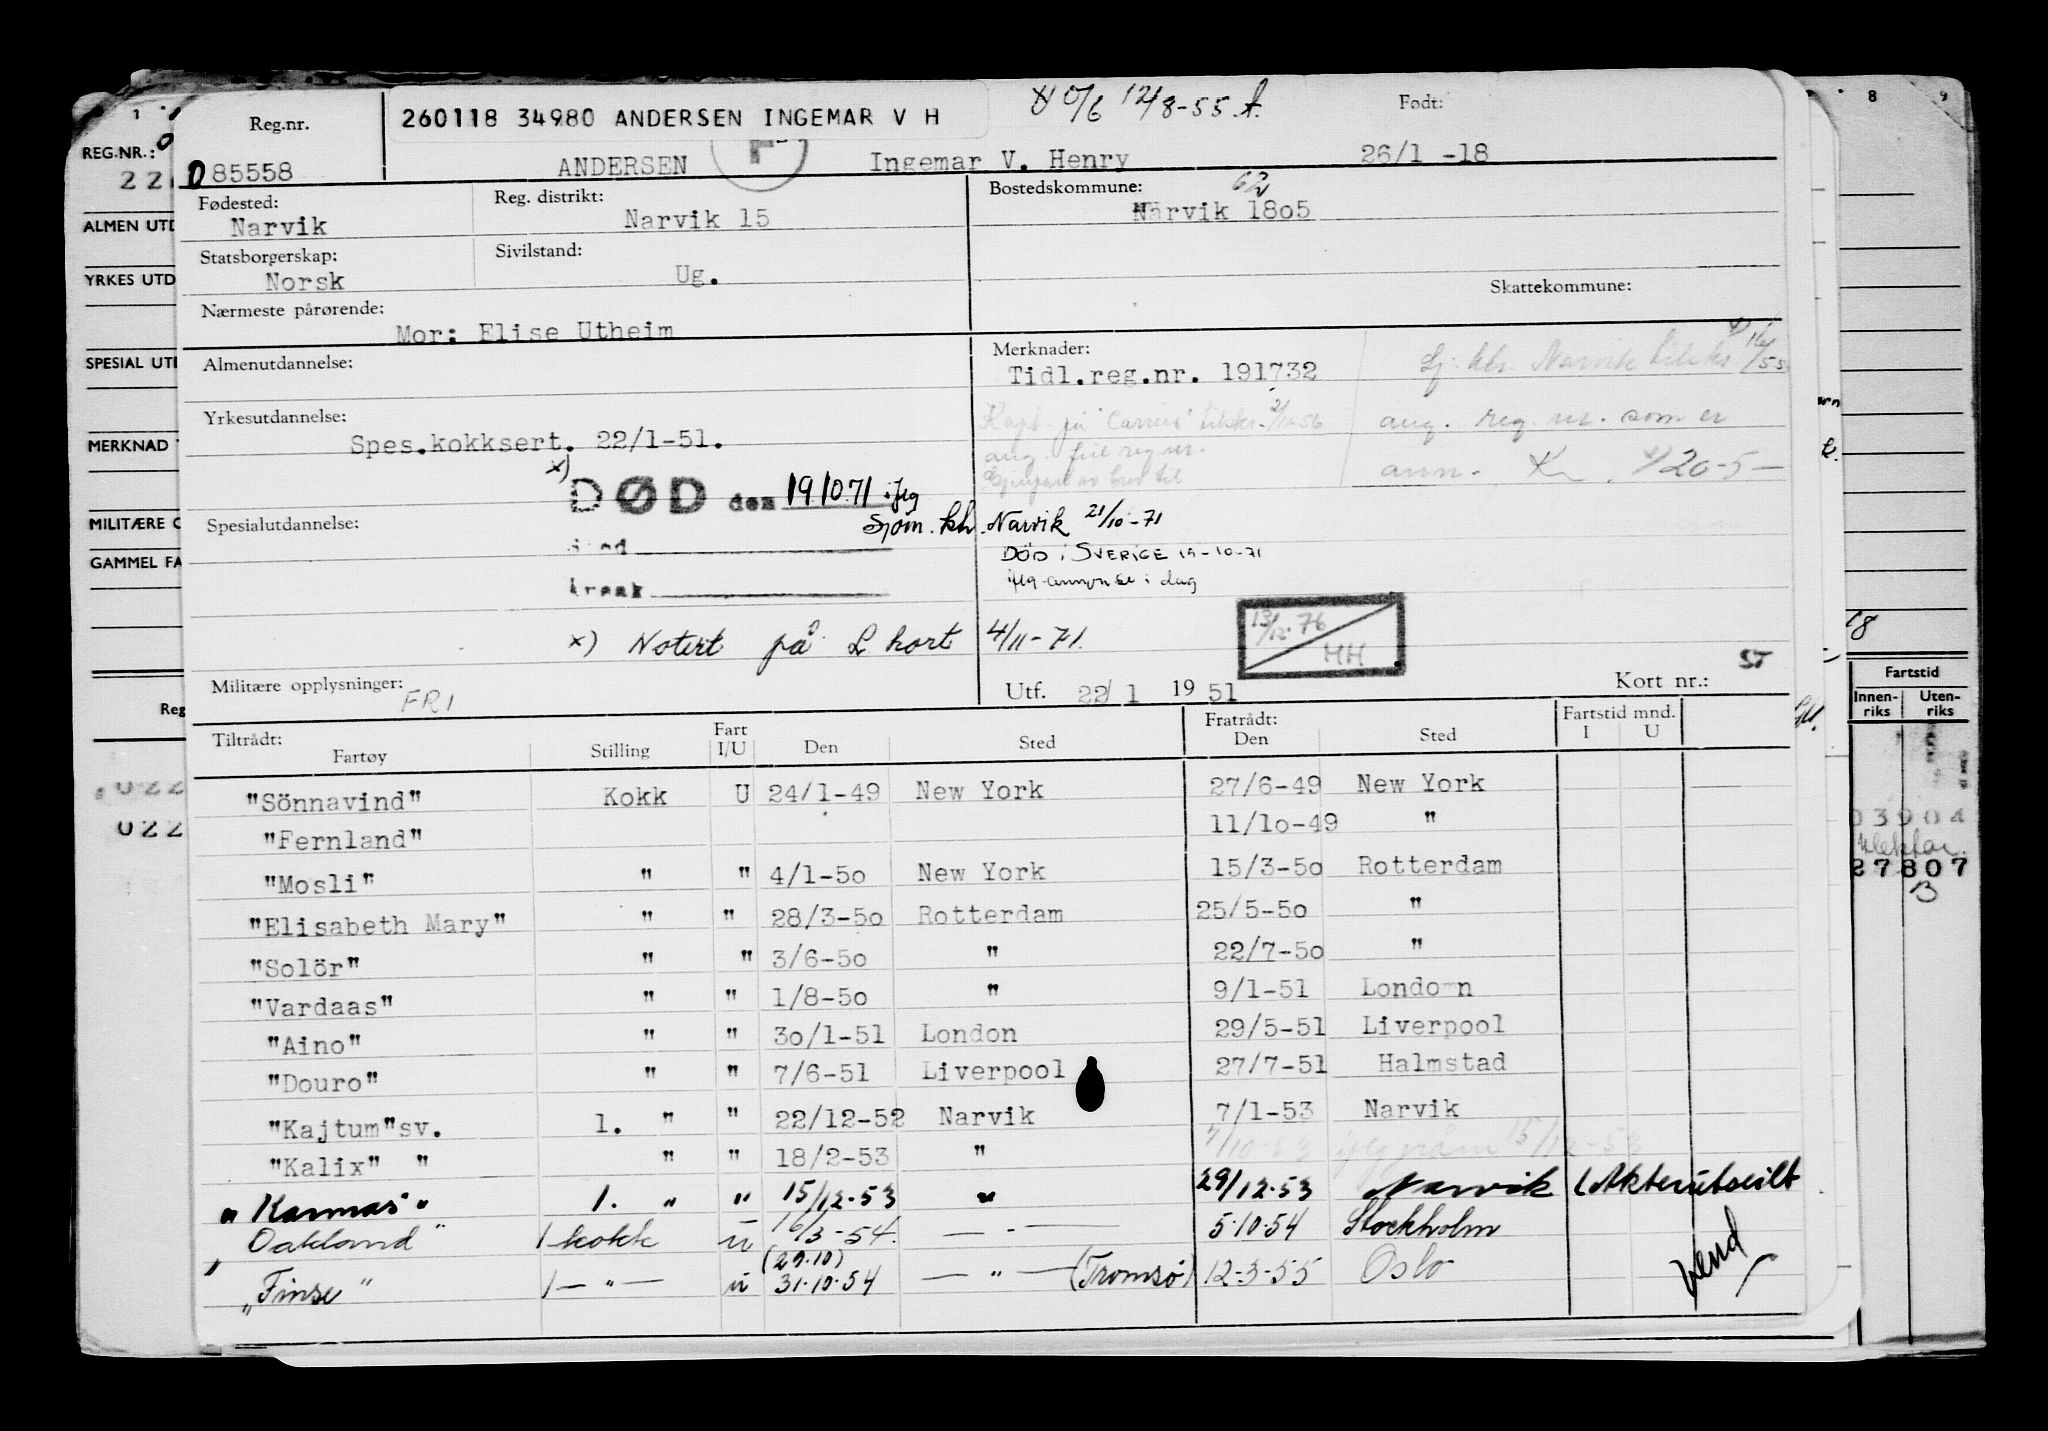 260118 34980 ANDERSEN INGEMAR V H
12/8-55
Født:
Reg.nr.
085558
ANDERSEN
Ingemar V. Henry
26/1 -18
Fødested:
Narvik
Reg. distrikt:
Narvik 15
Bostedskommune:
62
Narvik 18o5
Statsborgerskap:
Norsk
Sivilstand:
Ug.
Skattekommune:
Nærmeste pårørende:
Mor: Elise Utheim
Almenutdannelse:
Merknader:
Tidl.reg.nr. 191732
Yrkesutdannelse:
Spes.kokksert. 22/1-51.
ang. reg nr. som er
ann. 20-5-
x)
DØD den 19/10 71 iflg
Sjøm. kh. Narvik 21/10-71
Spesialutdannelse:
DÖD i SVERIGE 19-10-71
iflg annonse i dag
x) Notert på L kort 4/11-71.
13/12-76
MH
ST
Militære opplysninger:
FRI
Utf. 22/1 1951
Kort nr.:
Tiltrådt:
Fartøy
Stilling
Fart I/U
Den
Sted
Fratrådt:
Den
Sted
Fartstid mnd.
I U
"Sönnavind" Kokk U 24/1-49 New York 27/6-49 New York
"Fernland" 11/1o-49 "
"Mosli" " " 4/1-5o New York 15/3-5o Rotterdam
"Elisabeth Mary" " " 28/3-5o Rotterdam 25/5-5o "
"Solör" " " 3/6-5o " 22/7-5o "
"Vardaas" " " 1/8-5o " 9/1-51 London
"Aino" " " 3o/1-51 London 29/5-51 Liverpool
"Douro" " " 7/6-51 Liverpool 27/7-51 Halmstad
"Kajtum"sv. 1. " " 22/12-52 Narvik 7/1-53 Narvik
"Kalix" " " " 18/2-53 "
"Karmas" 1. " " 15/12-53 " 29/12-53 Narvik (Akterutseilt
"Oakland" 1 kokk u 16/3-54. — 5-10-54 Stockholm
(29.10)
"Finse" 1 — " — u 31-10-54 — " — (Tromsø) 12-3-55 Oslo
Vend
REG.NR.:
ALMEN UTD
YRKES UTD
SPESIAL UTD
MERKNAD
MILITÆRE O
GAMMEL FA
Reg
022
022
8
9
Fartstid
Innen-riks
Uten-riks
03904
27807